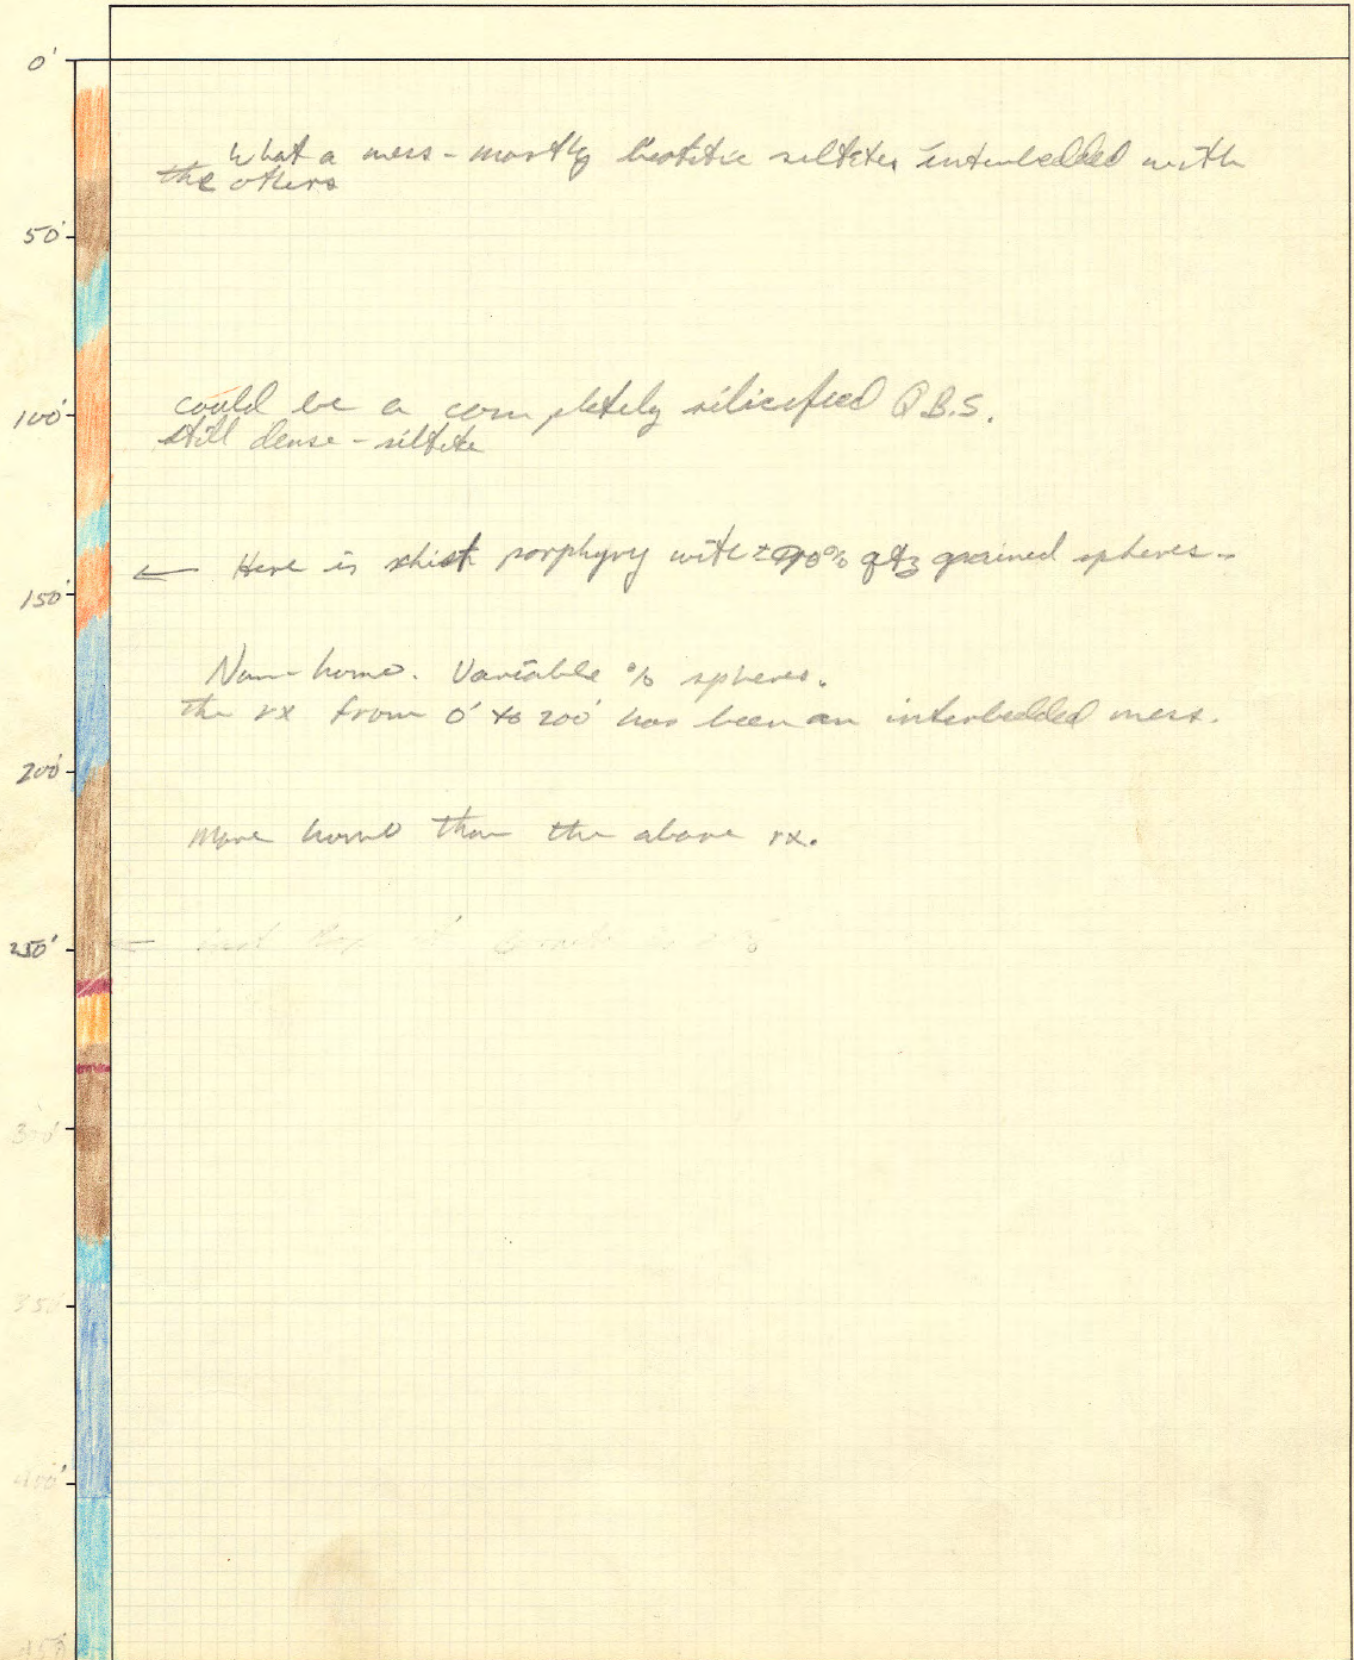 0'
What a mess - mostly biotitic siltites interbedded with
the others
50'
100'
could be a completely silicified Q.B.S.
still dense - siltite
← Here is schist porphyry with ± 90% qtz grained spheres.
150'
Non-homo. Variable % spheres.
the rx from 0' to 200' has been an interbedded mess.
200'
More homo than the above rx.
250'
300'
350'
400'
450'